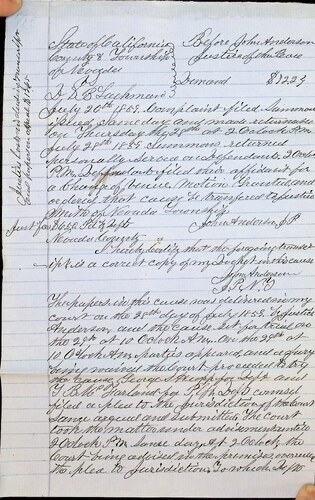 State of California Before John Anderson
County & Township Justice of the Peace
of Nevada
vs Demand $1223
Lachman
July 26th 1865. Complaint filed Summons
issued same day and made returnable
on Thursday the 28th at 2 Oclock P.M
July 28th 1865 Summons returned
personally served on defendants 2 Oclock
P.M. Defendant filed their affidavit for
a Change of Venue. Motion Granted and
ordered that cause be transfered to Justice
of Nevada Township
John Anderson J.P.
Just fees Pd by Deft
Nevada County
I hereby certify that the forgoing transcr
ipt is a correct copy of my Docket in this cause
John Anderson
J.P.N.T
The papers in this cause was delivered in my
court on the 28th day of July 1865. By Justice
Anderson and the cause set for trial on
the 29th at 10 O'Clock A.M. On the 29th at
10 O'Clock A.M. parties appeared, and a jury
being waived the Court proceeded to try
the cause. George for Deft and
Garland for Plff. Defts counsel
filed a plea to the Jurisdiction of the Court
Same argued and submitted. The Court
took the matter under advisement until
2 Oclock P.M. same day. At 2 Oclock the
Court being advised in the premises overrules
the plea to Jurisdiction To which Defts